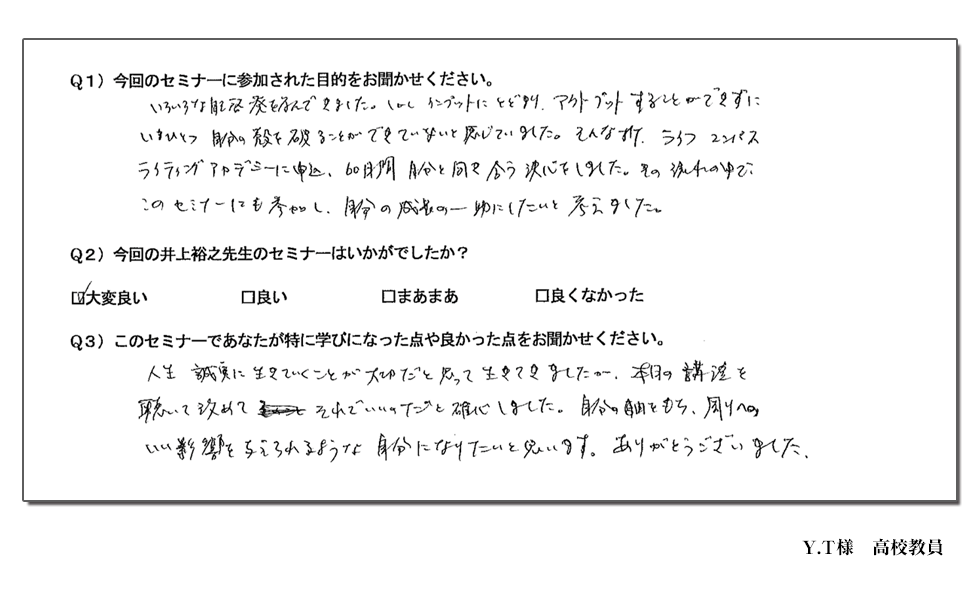 Q1）今回のセミナーに参加された目的をお聞かせください。
いろいろな自己啓発を学んできました。しかしインプットにとどまり、アウトプットすることができずに
いまひとつ 自分の殻を破ることができていないと感じていました。そんな折、ライフコンパス
ライティングアカデミーに申込、60日間 自分と向き合う決心をしました。その流れの中で、
このセミナーにも参加し、自分の成長の一助にしたいと考えました。
Q2）今回の井上裕之先生のセミナーはいかがでしたか？
☑大変良い □良い □まあまあ □良くなかった
Q3）このセミナーであなたが特に学びになった点や良かった点をお聞かせください。
人生 誠実に生きていくことが大切だと思って生きてきましたが、本日の講演を
聴いて改めて それでいいのだと確信しました。自分の軸をもち、周りへの
いい影響を与えられるような自分になりたいと思います。ありがとうございました。
Y.T様 高校教員